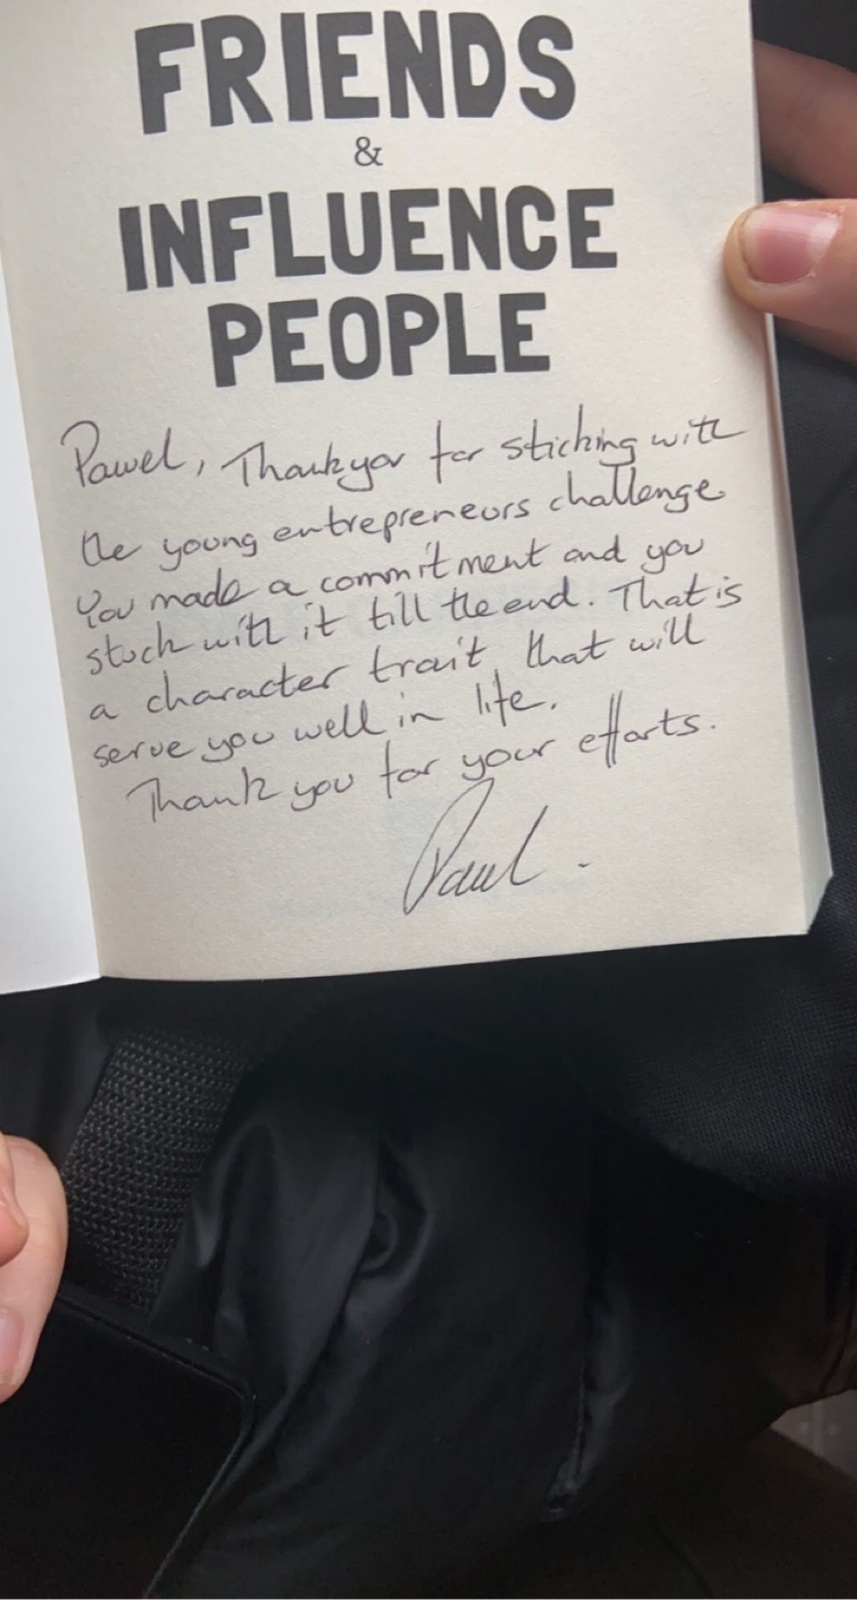 FRIENDS
&
INFLUENCE
PEOPLE
Pawel, Thankyou for sticking with
the young entrepreneurs challenge
You made a commitment and you
stuck with it till the end. That is
a character trait that will
serve you well in life.
Thank you for your efforts.
Paul.